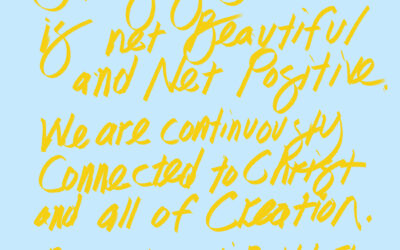 is net Beautiful
and Net Positive.
We are continuously
Connected to Christ
and all of Creation.